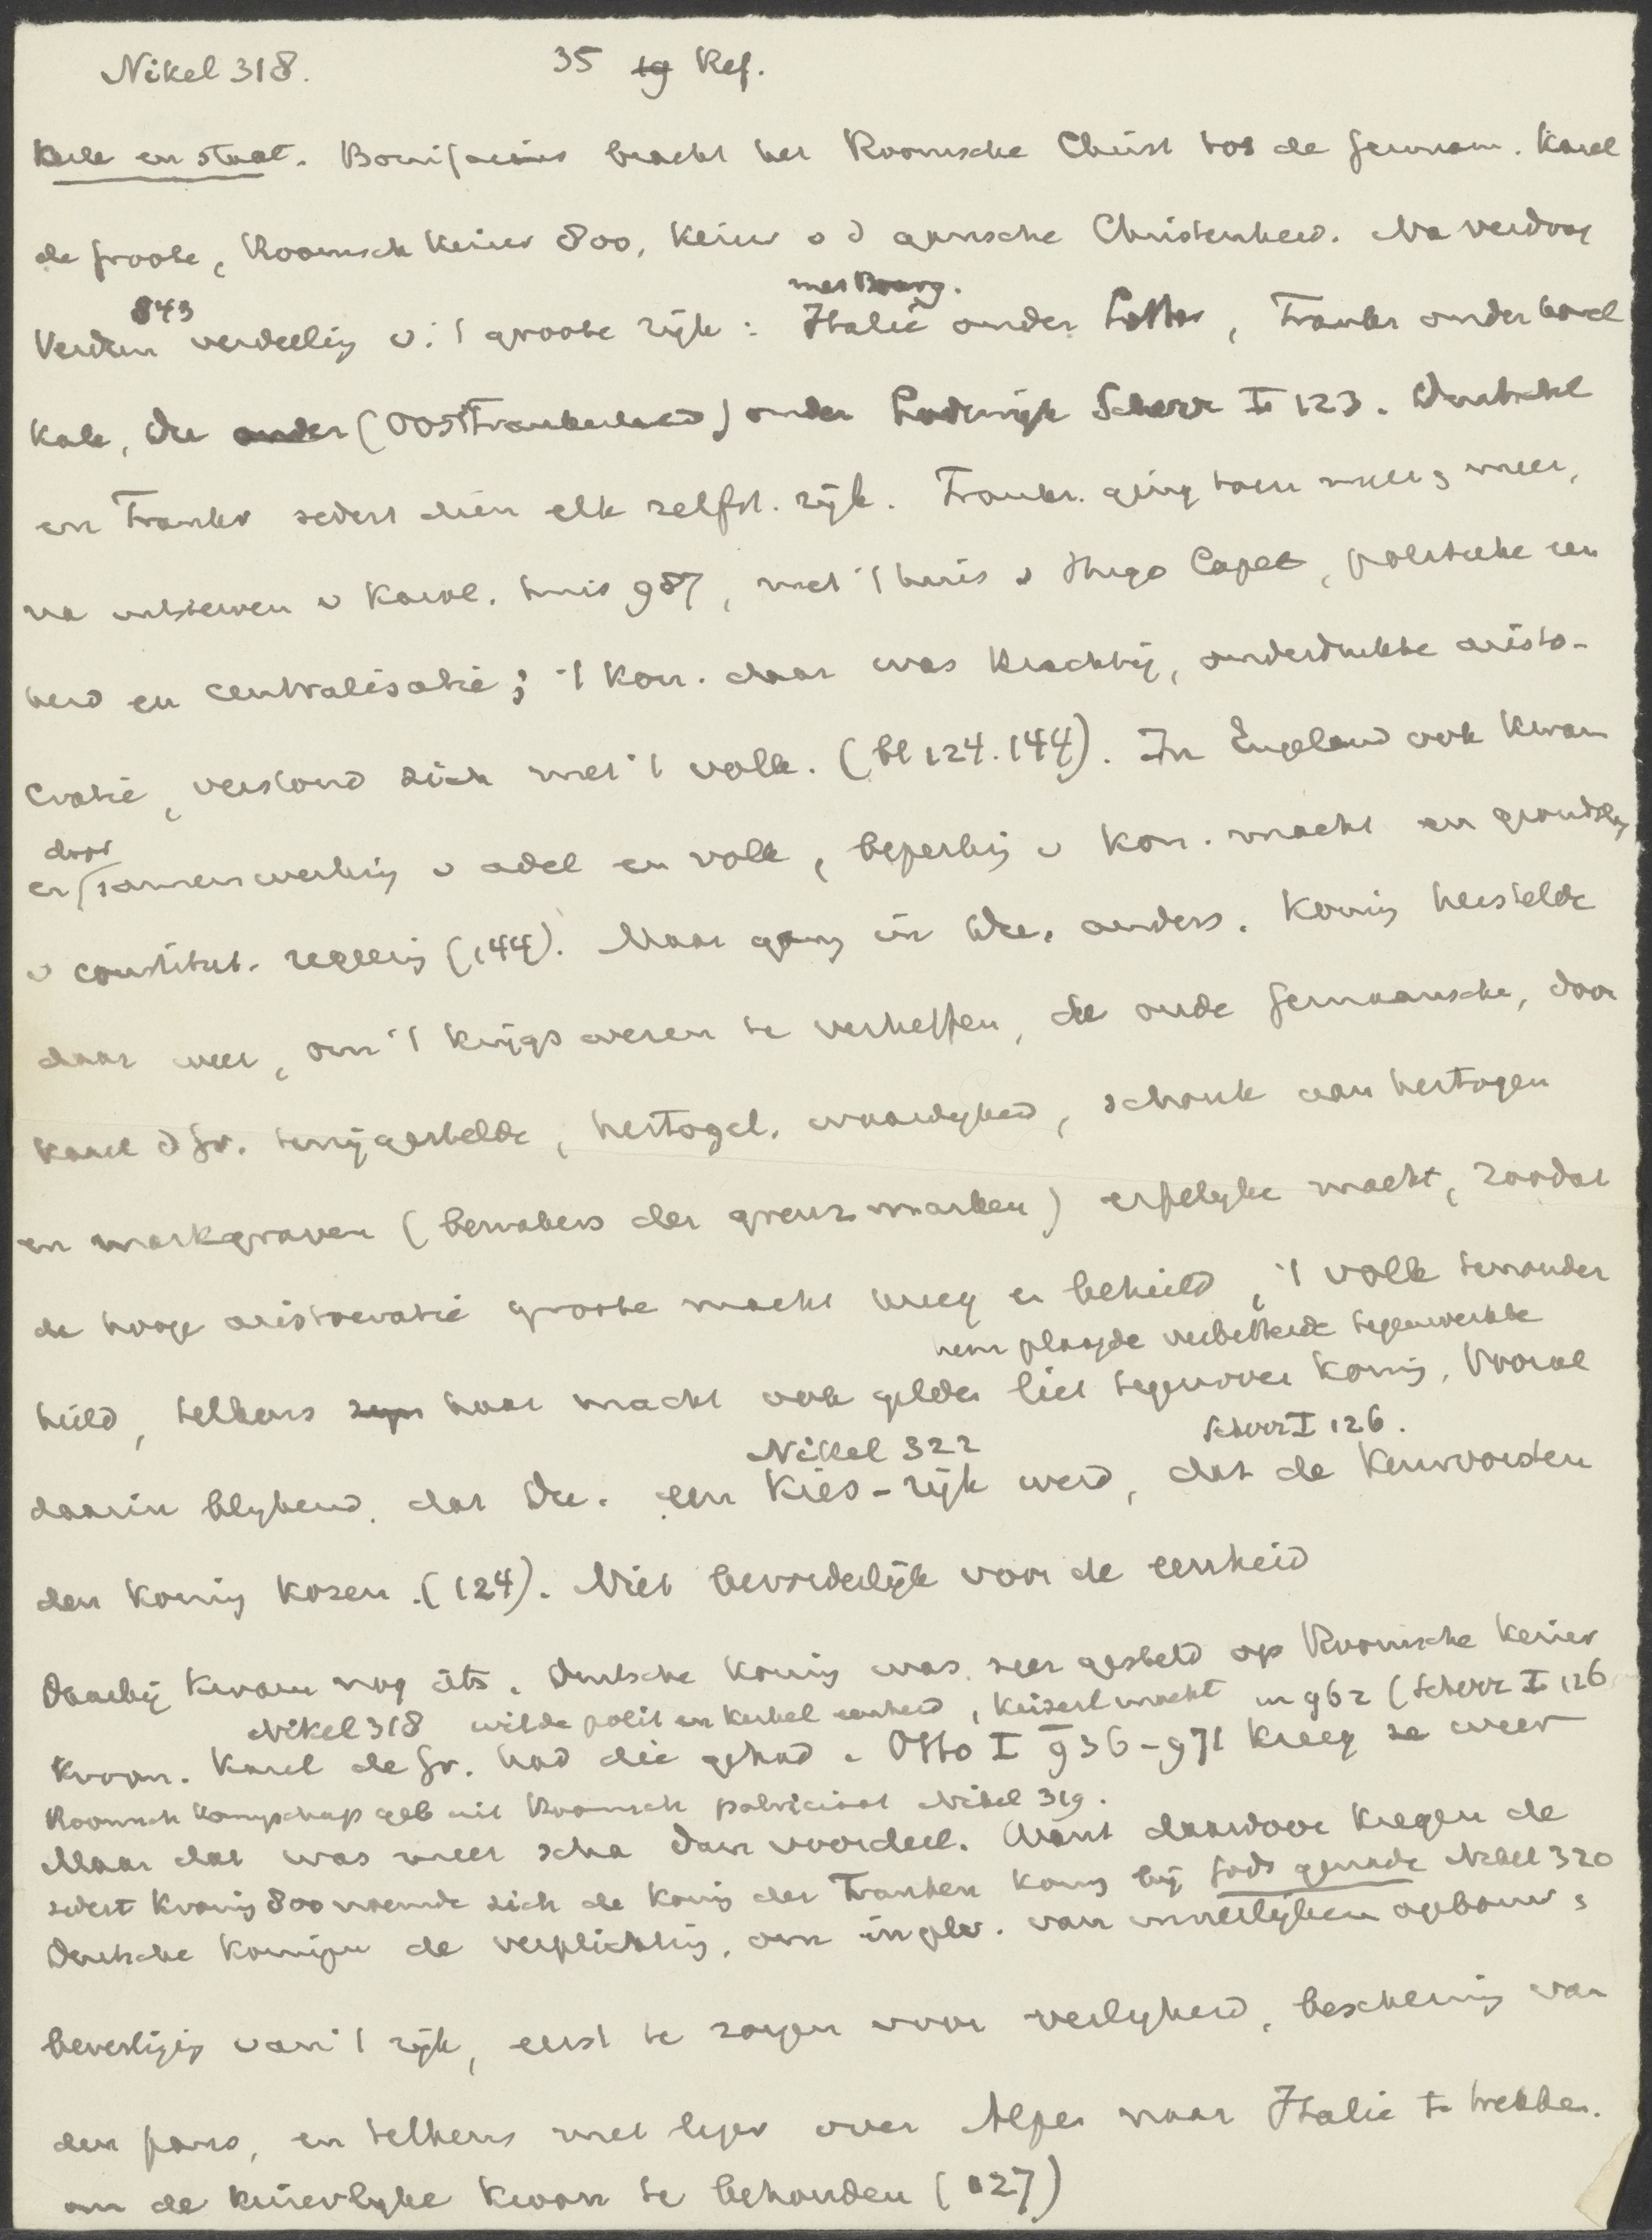 Nikel 318. 35 19 Ref.
Kerk en staat. Bonifacius bracht het Roomsche Christ tot de German. Karel
de Groote, Roomsch Keizer 800, Keizer v d gansche Christenheid. Na verdrag
843 met Bourg.
Verdun verdeeling v. 't groote rijk : Italië onder Lothar, Frankr onder Karel
Kale, Du onder (Oostfrankenland) onder Lodewijk Scherr I 123. Duitschl
en Frankr sedert dien elk zelfst. rijk. Frankr. ging toen meer en meer,
na uitsterven v Karol. huis 987, met 't huis v Hugo Capet, politieke een
heid en centralisatie; 't kon. daar was krachtig, onderdrukte aristo-
cratie, verstond zich met 't volk. (bl 124. 144). In Engeland ook kwam
door
er samenwerking v adel en volk, beperking v kon. macht en grondslg
v constitut. regeering (144). Maar ging in Du. anders. Koning herstelde
daar weer, om 't krijgswezen te verheffen, de oude Germaansche, door
Karel d Gr. terzijgestelde, hertogel. waardigheid, schonk aan hertogen
en markgraven (bewakers der grenzmarken) erfelijke macht, zoodat
de hooge aristocratie groote macht kreeg en behield, 't volk teronder
hem plaagde verbitterde tegenwerkte
hield, telkens zyn haar macht ook gelden liet tegenover koning. Vooral
Nikel 322 Scherr I 126.
daarin blijkend, dat Du. een Kies-rijk werd, dat de Keurvorsten
den koning kozen. (124). Niet bevorderlijk voor de eenheid
Daarbij kwam nog iets. Duitsche koning was zeer gesteld op Roomsche Keizer
Nikel 318 wilde polit en kerkel eenheid, Keizerl macht in 962 (Scherr I 126
kroon. Karel de Gr. had die gehad. Otto I 936-971 kreeg ze weer
Roomsch Koningschap geb uit Roomsch patriciaat Nikel 319.
Maar dat was meer scha dan voordeel. Want daardoor kregen de
sedert Kroning 800 noemde zich de koning der Franken koning bij Gods genade Nikel 320
Duitsche koningen de verplichting, om in plv. van innerlijken opbouw en
bevestiging van 't rijk, eerst te zorgen voor veiligheid, bescherming van
den paus, en telkens met leger over Alpen naar Italië te trekken.
om de keizerlijke kroon te behouden (127)